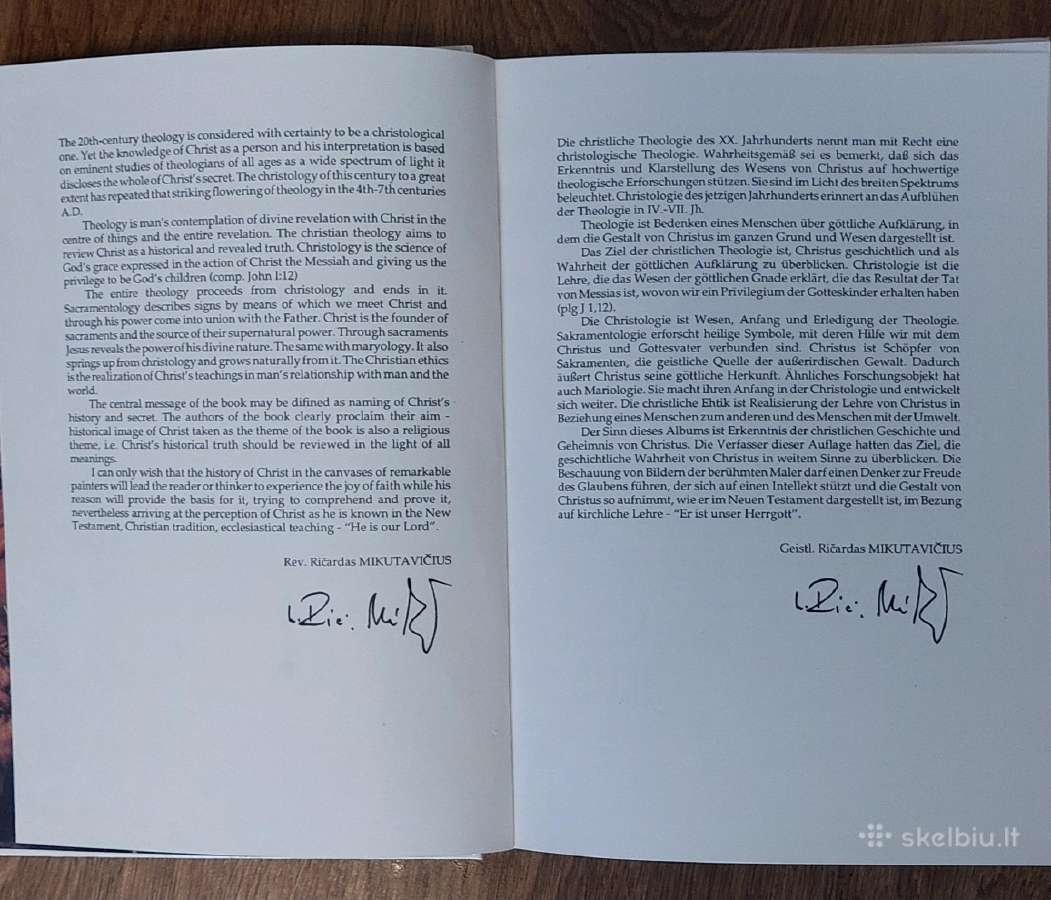 The 20th-century theology is considered with certainty to be a christological
one. Yet the knowledge of Christ as a person and his interpretation is based
on eminent studies of theologians of all ages as a wide spectrum of light it
discloses the whole of Christ's secret. The christology of this century to a great
extent has repeated that striking flowering of theology in the 4th-7th centuries
A.D.
Theology is man's contemplation of divine revelation with Christ in the
centre of things and the entire revelation. The christian theology aims to
review Christ as a historical and revealed truth. Christology is the science of
God's grace expressed in the action of Christ the Messiah and giving us the
privilege to be God's children (comp. John 1:12)
The entire theology proceeds from christology and ends in it.
Sacramentology describes signs by means of which we meet Christ and
through his power come into union with the Father. Christ is the founder of
sacraments and the source of their supernatural power. Through sacraments
Jesus reveals the power of his divine nature. The same with maryology. It also
springs up from christology and grows naturally from it. The Christian ethics
is the realization of Christ's teachings in man's relationship with man and the
world.
The central message of the book may be difined as naming of Christ's
history and secret. The authors of the book clearly proclaim their aim -
historical image of Christ taken as the theme of the book is also a religious
theme, i.e. Christ's historical truth should be reviewed in the light of all
meanings.
I can only wish that the history of Christ in the canvases of remarkable
painters will lead the reader or thinker to experience the joy of faith while his
reason will provide the basis for it, trying to comprehend and prove it,
nevertheless arriving at the perception of Christ as he is known in the New
Testament, Christian tradition, ecclesiastical teaching - "He is our Lord".
Rev. Ričardas MIKUTAVIČIUS
Die christliche Theologie des XX. Jahrhunderts nennt man mit Recht eine
christologische Theologie. Wahrheitsgemäß sei es bemerkt, daß sich das
Erkenntnis und Klarstellung des Wesens von Christus auf hochwertige
theologische Erforschungen stützen. Sie sind im Licht des breiten Spektrums
beleuchtet. Christologie des jetzigen Jahrhunderts erinnert an das Aufblühen
der Theologie in IV.-VII. Jh.
Theologie ist Bedenken eines Menschen über göttliche Aufklärung, in
dem die Gestalt von Christus im ganzen Grund und Wesen dargestellt ist.
Das Ziel der christlichen Theologie ist, Christus geschichtlich und als
Wahrheit der göttlichen Aufklärung zu überblicken. Christologie ist die
Lehre, die das Wesen der göttlichen Gnade erklärt, die das Resultat der Tat
von Messias ist, wovon wir ein Privilegium der Gotteskinder erhalten haben
(plg J 1,12).
Die Christologie ist Wesen, Anfang und Erledigung der Theologie.
Sakramentologie erforscht heilige Symbole, mit deren Hilfe wir mit dem
Christus und Gottesvater verbunden sind. Christus ist Schöpfer von
Sakramenten, die geistliche Quelle der außerirdischen Gewalt. Dadurch
äußert Christus seine göttliche Herkunft. Ähnliches Forschungsobjekt hat
auch Mariologie. Sie macht ihren Anfang in der Christologie und entwickelt
sich weiter. Die christliche Ehtik ist Realisierung der Lehre von Christus in
Beziehung eines Menschen zum anderen und des Menschen mit der Umwelt.
Der Sinn dieses Albums ist Erkenntnis der christlichen Geschichte und
Geheimnis von Christus. Die Verfasser dieser Auflage hatten das Ziel, die
geschichtliche Wahrheit von Christus in weitem Sinne zu überblicken. Die
Beschauung von Bildern der berühmten Maler darf einen Denker zur Freude
des Glaubens führen, der sich auf einen Intellekt stützt und die Gestalt von
Christus so aufnimmt, wie er im Neuen Testament dargestellt ist, im Bezung
auf kirchliche Lehre - "Er ist unser Herrgott".
Geistl. Ričardas MIKUTAVIČIUS
skelbiu.lt